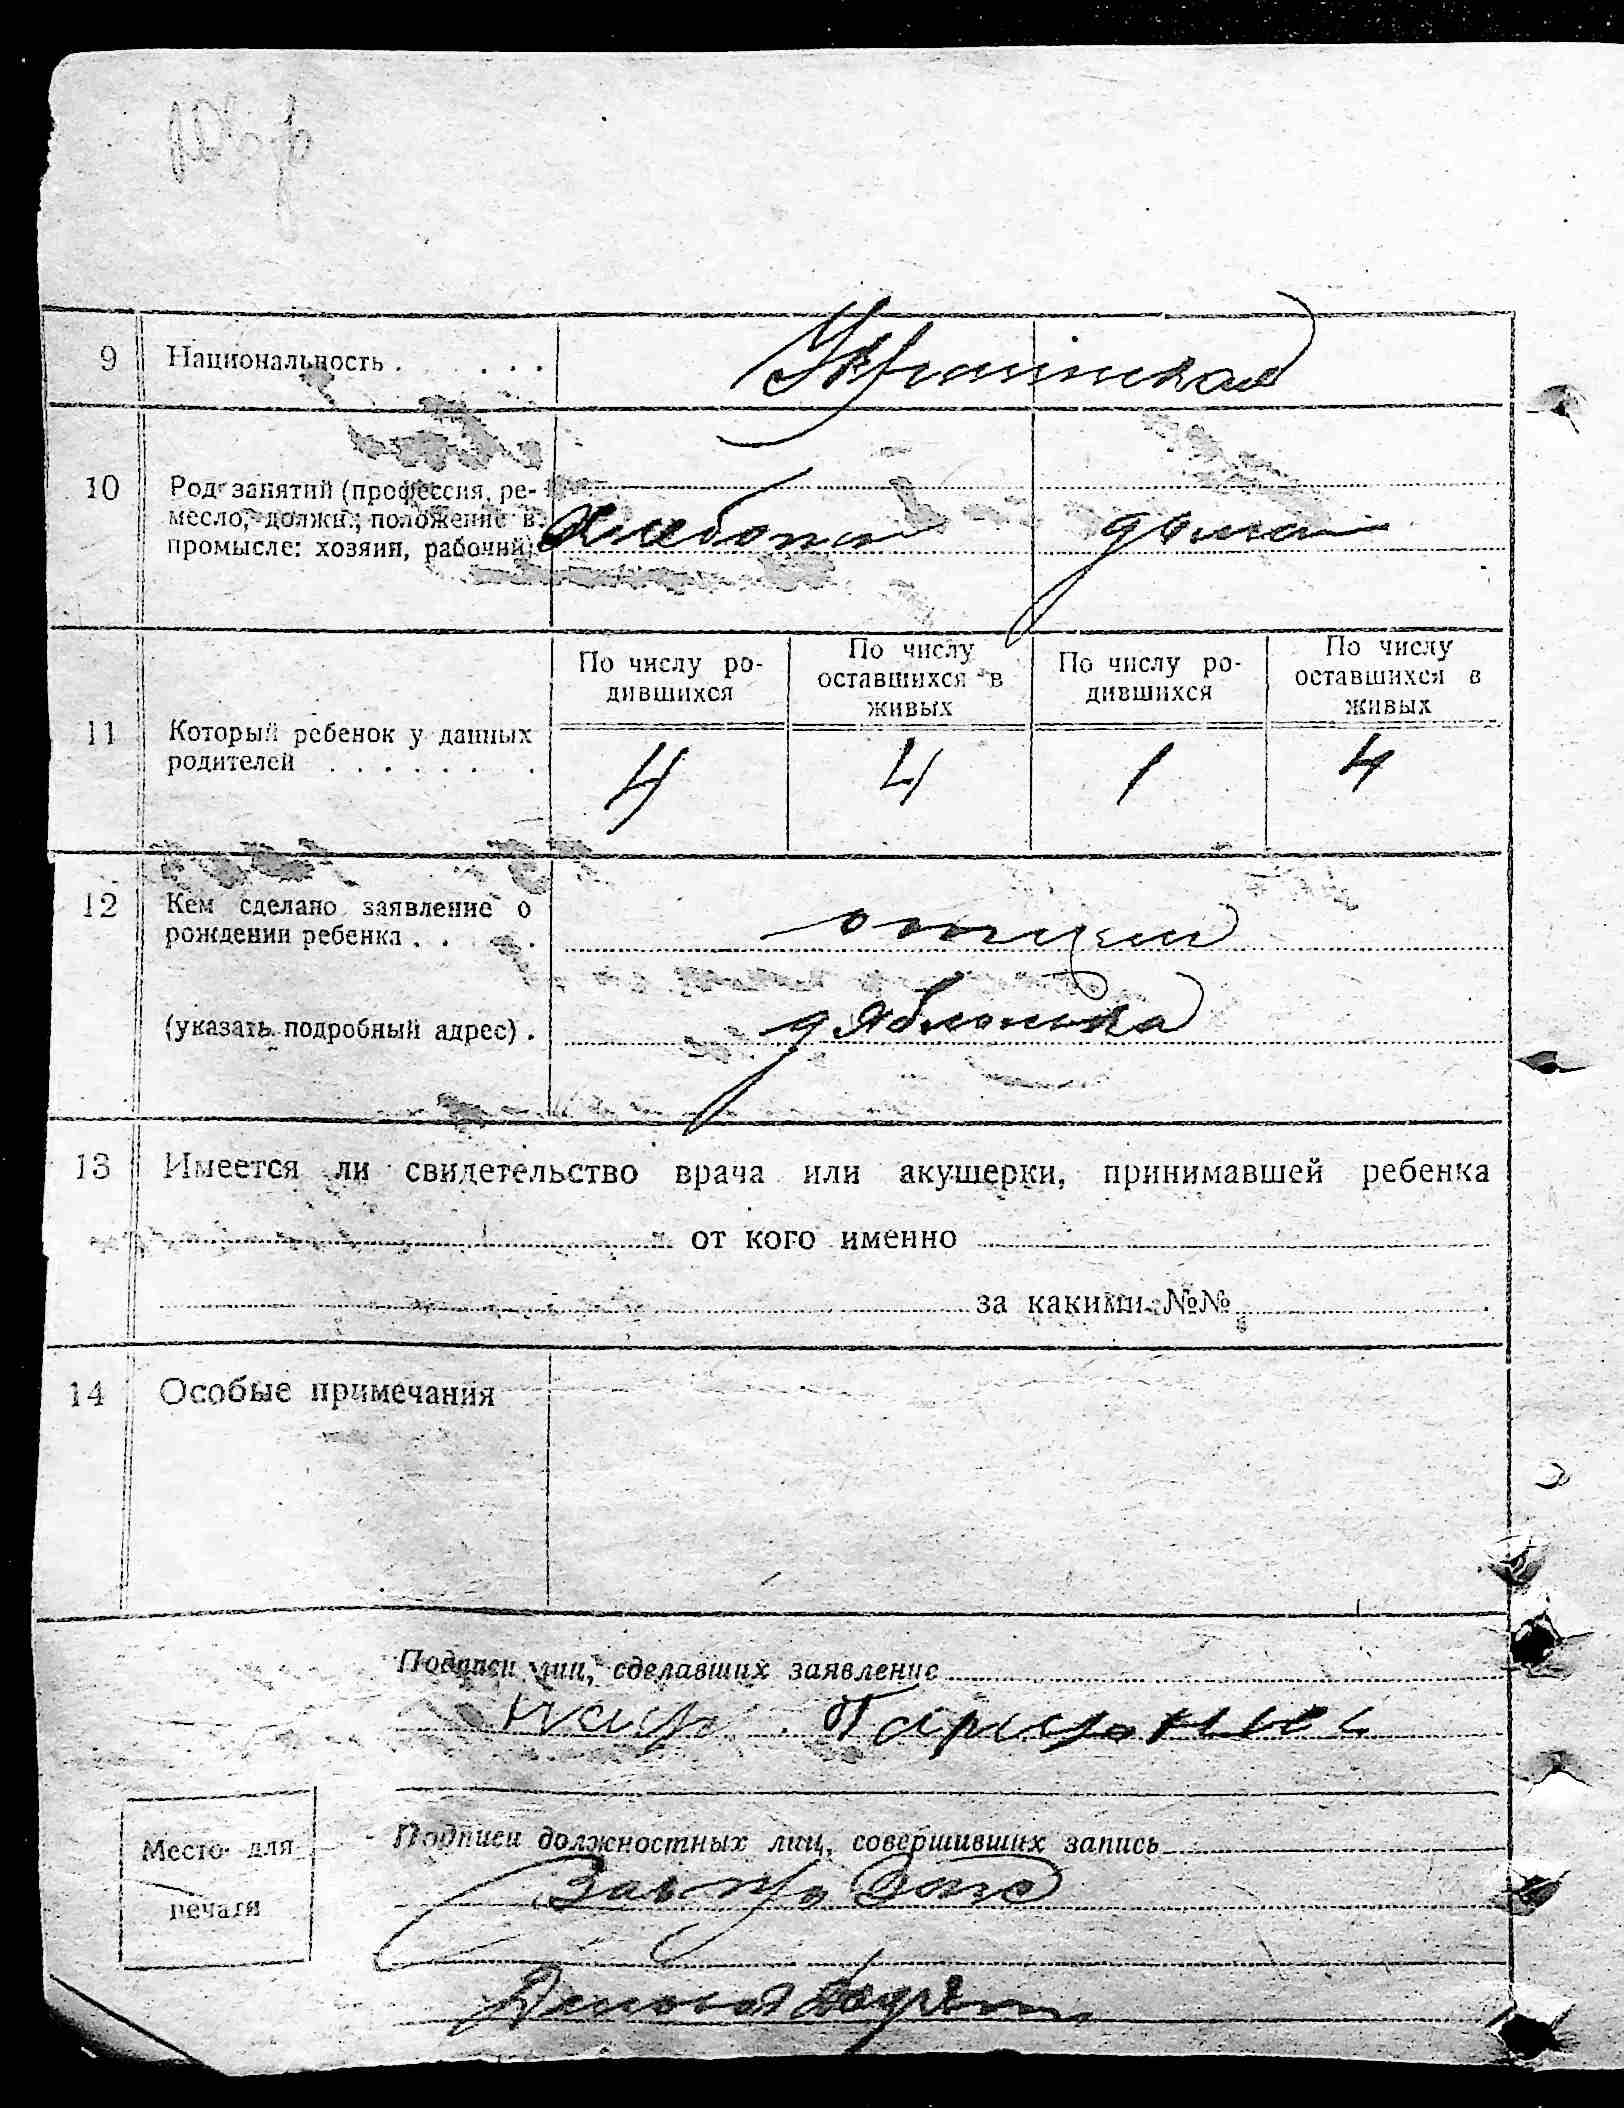 9 Национальность . . . . . .
Украинская
10 Род занятий (профессия, ре-
месло, должн., положение в
промысле: хозяин, рабочий)
Хлебопа дома
По числу ро-
дившихся
По числу
оставшихся в
живых
По числу ро-
дившихся
По числу
оставшихся в
живых
11 Который ребенок у данных
родителей . . . . . . .
4 4 1 4
12 Кем сделано заявление о
рождении ребенка . . . .
отцем
(указать подробный адрес) .
д Яблонька
13 Имеется ли свидетельство врача или акушерки, принимавшей ребенка
от кого именно
за какими №№
14 Особые примечания
Подписи лиц, сделавших заявление
Подписи должностных лиц, совершивших запись
Место для
печати